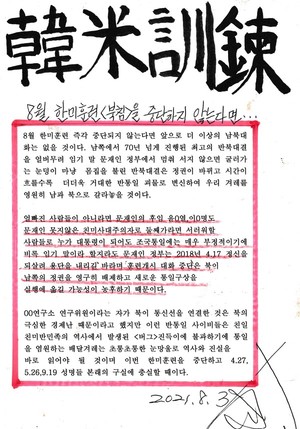 韓米訓鍊
8월 한미훈련<북침>을 중단하지 않는다면...
8월 한미훈련 즉각 중단되지 않는다면 앞으로 더 이상의 남북대
화는 없을 것이다. 남쪽에서 70년 넘게 진행된 최고의 반북대결
을 얼버무려 임기 말 문재인 정부에서 멈춰 서지 않으면 굴러가
는 눈덩이 마냥 몸집을 불린 반북대결은 정권이 바뀌고 시간이
흐를수록 더더욱 거대한 반통일 괴물로 변신하여 우리 겨레를
영원히 남과 북으로 갈라놓을 것이다.
얼빠진 사람들이 아니라면 문재인의 후임
문재인 못지않은 친미사대주의자로 둘째가라면 서러워할
사람들로 누가 대통령이 되어도 조국통일에는 매우 부정적이기에
비록 임기 말이라 할지라도 문재인 정부는 2018년 4.17 정신을
되살려 용단을 내리길 바라며 훈련개시 대화 중단은 북이
남쪽의 정권을 영구히 배제하고 새로운 통일구상을
실행에 옮길 가능성이 농후하기 때문이다.
00연구소 연구위원이라는 자가 북이 통신선을 연결한 것은 북의
극심한 경제난 때문이라고 했지만 이런 반통일 사이비들은 친일
친미반민족의 역사에서 발생된 <버그>들이에 불과하기에 통일
을 염원하는 배달겨레는 초롱초롱한 눈망울로 역사와 진실을
바로 읽어야 될 것이며 이번 한미훈련을 중단하고 4.27,
5.26,9.19 성명들 본래의 구실에 충실할 때이다.
2021. 8. 3